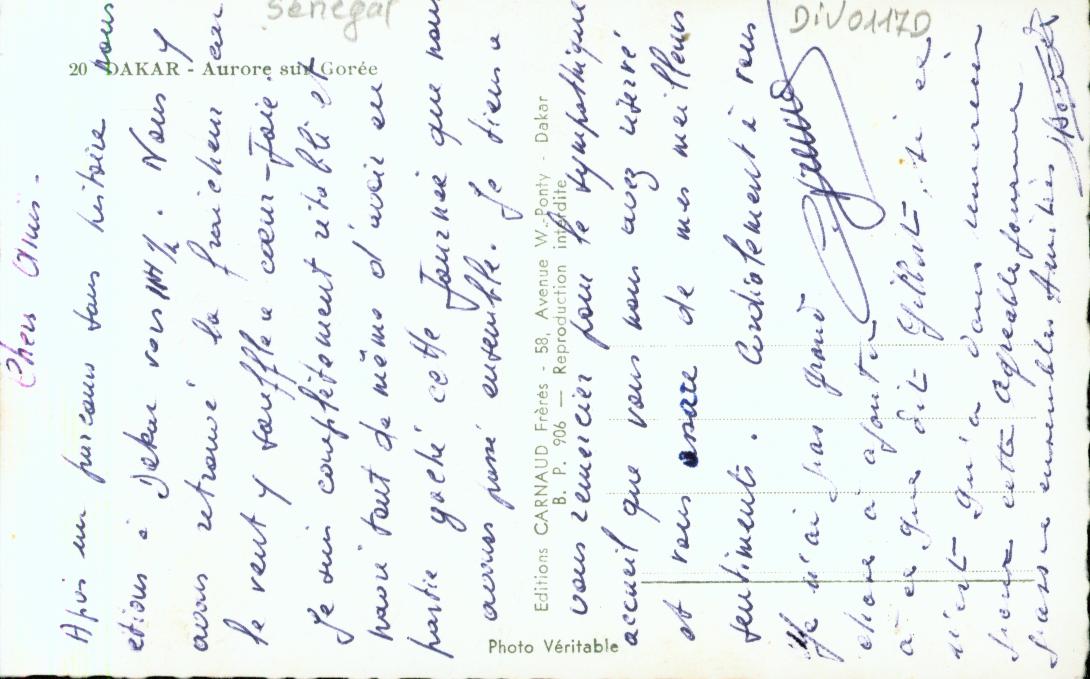 Sénégal
DIV0117D
20 DAKAR - Aurore sur Gorée
Chers Amis.
Après un parcours sans histoire nous
étions à Dakar vers . Nous y
avons retrouvé la fraicheur car
le vent y souffle à cœur-Joie.
Je suis complètement rétabli et
navré tout de même d'avoir en
partie gaché cette Journée que nous
avons passé ensemble. Je tiens à
Editions CARNAUD Frères - 58, Avenue W.-Ponty - Dakar
B. P. 906 — Reproduction interdite
vous remercier pour le sympathique
accueil que vous nous avez réservé
et vous assure de mes meilleurs
sentiments. Cordialement à vous
Je n'ai pas grand
chose à ajouter
à ce que dit Gilbert, si ce
n'est qu'un
pour cette agréable journée
Amitiés
Photo Véritable